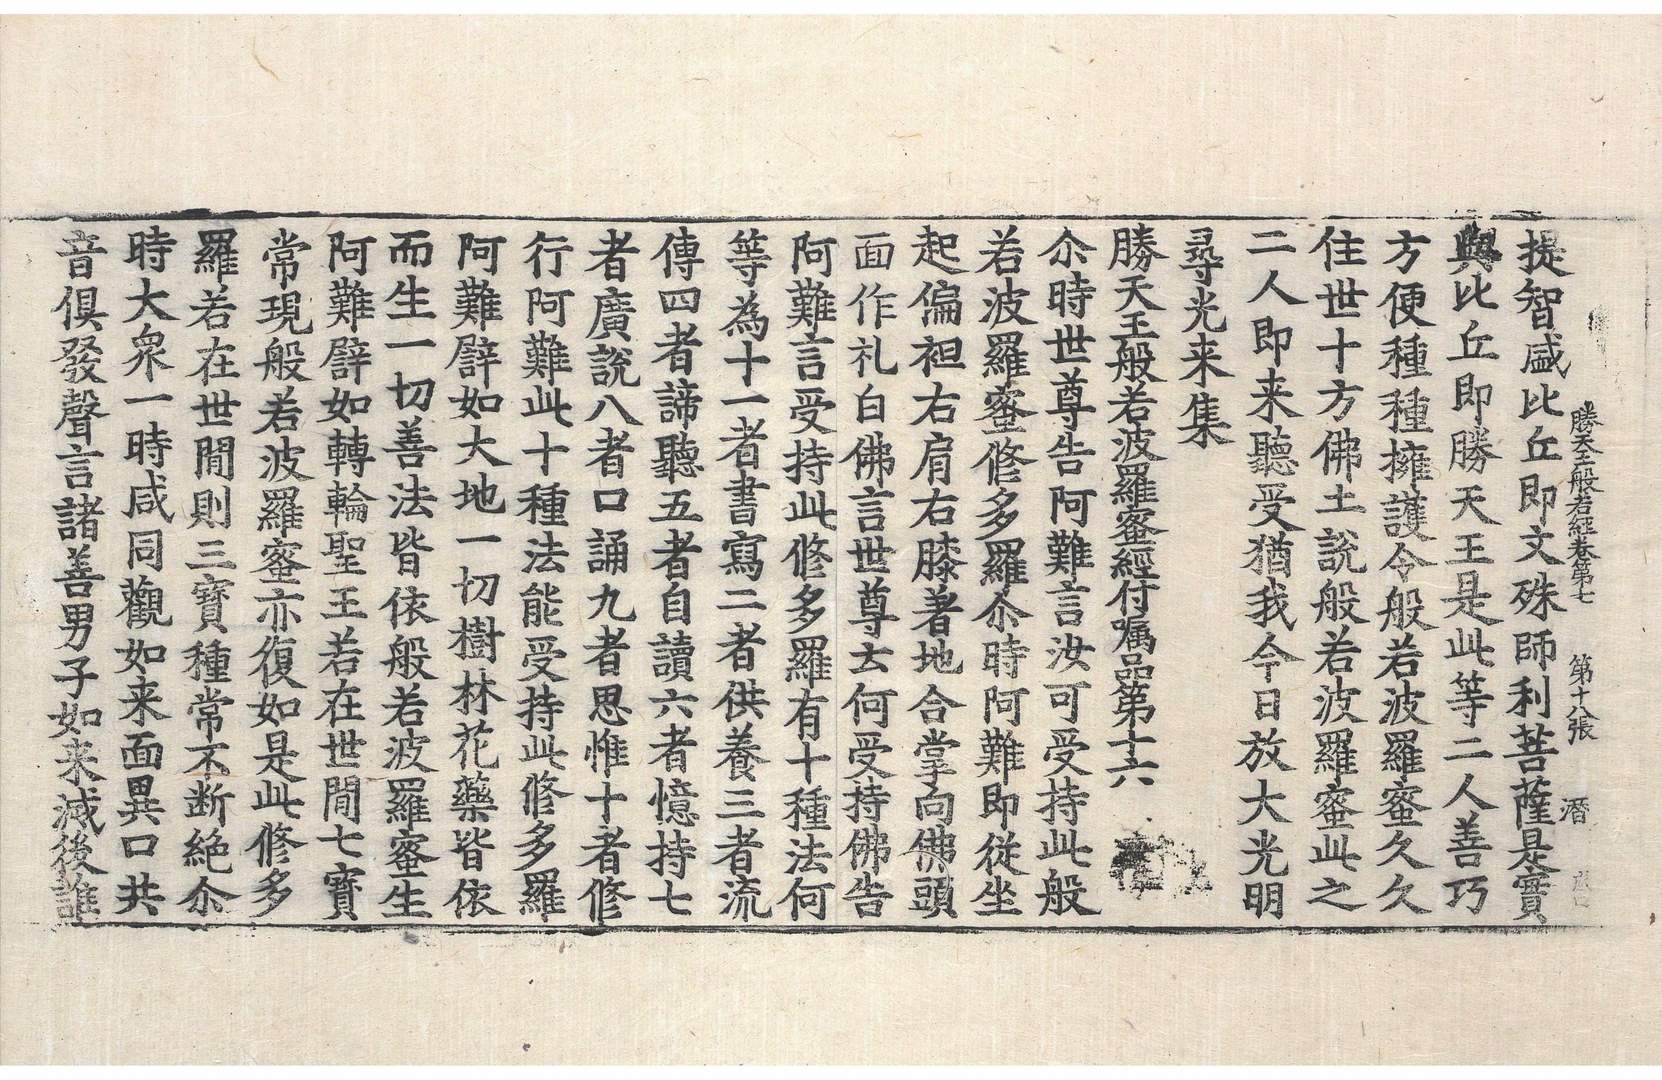 勝天王般若經卷第七 第十八張 潛
提智盛比丘即文殊師利菩薩是實
與比丘即勝天王是此等二人善巧
方便種種擁護令般若波羅蜜久久
住世十方佛土說般若波羅蜜此之
二人即来聽受猶我今日放大光明
尋光来集
勝天王般若波羅蜜經付嘱品第十六
尒時世尊告阿難言汝可受持此般
若波羅蜜修多羅尒時阿難即從坐
起偏袒右肩右膝著地合掌向佛頭
面作礼白佛言世尊云何受持佛告
阿難言受持此修多羅有十種法何
等為十一者書寫二者供養三者流
傳四者諦聽五者自讀六者憶持七
者廣說八者口誦九者思惟十者修
行阿難此十種法能受持此修多羅
阿難譬如大地一切樹林花藥皆依
而生一切善法皆依般若波羅蜜生
阿難譬如轉輪聖王若在世閒七寶
常現般若波羅蜜亦復如是此修多
羅若在世閒則三寶種常不断絶尒
時大衆一時咸同觀如来面異口共
音俱發聲言諸善男子如来滅後誰